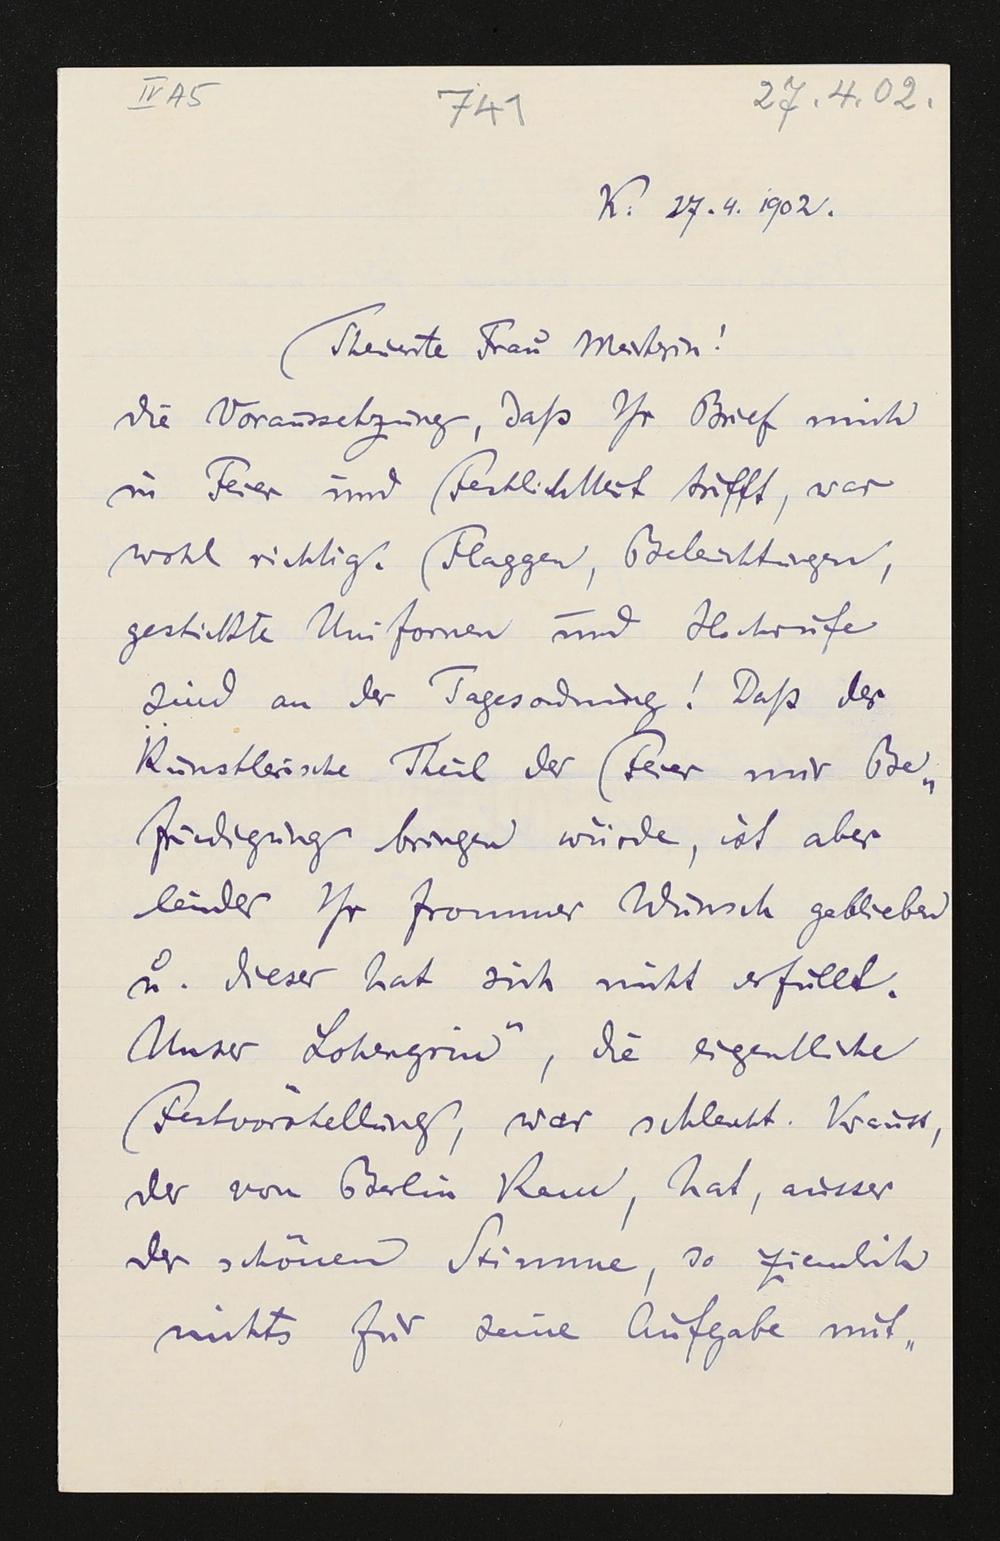 IV A5 741 27.4.02.
K. 27.4.1902.
Theuerste Frau Meisterin!
die Voraussetzung, daß Ihr Brief mich
in Feier und Festlichkeit trifft, war
wohl richtig. Flaggen, Beleuchtungen,
gestickte Uniformen und Hochrufe
sind an der Tagesordnung! Daß der
Künstlerische Theil der Feier mir Be„
friedigung bringen würde, ist aber
leider Ihr frommer Wunsch geblieben
u. dieser hat sich nicht erfüllt.
Unser Lohengrin“, die eigentliche
Festvorstellung, war schlecht. Krauss,
der von Berlin kam, hat, ausser
der schönen Stimme, so ziemlich
nichts für seine Aufgabe mit„